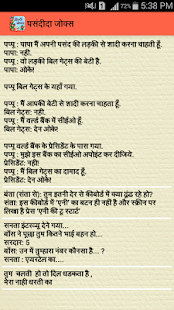 5:38 PM
पसंदीदा जोक्स
पप्पू : पापा मैं अपनी पसंद की लड़की से शादी करना चाहता हूँ.
पापा: नहीं.
पप्पू : वो लड़की बिल गेट्स की बेटी है.
पापा: ओके!
पप्पू बिल गेट्स के यहाँ गया.
पप्पू: मैं आपकी बेटी से शादी करना चाहता हूँ.
बिल गेट्स: नहीं.
पप्पू: मैं वर्ल्ड बैंक में सीईओ हूँ.
बिल गेट्स: देन ओके!
पप्पू वर्ल्ड बैंक के प्रेसिडेंट के पास गया.
पप्पू : मुझे इस बैंक का सीईओ अपोइंट कर दीजिये.
प्रेसिडेंट: नहीं!
पप्पू: मैं बिल गेट्स का दामाद हूँ.
प्रेसिडेंट: देन ओके!
बंता (संता से): तुम इतनी देर से कीबोर्ड में क्या ढूंढ रहे हो?
संता: इस कीबोर्ड में 'एनी' का बटन ही नहीं है और स्क्रीन पर
लिखा है प्रेस 'एनी की टू स्टार्ट'
सनता इंटरव्यू देने गया...
बॉस ने पूछा तुम कितने भाई बहन हो...
सरदार: 5
बॉस: उन में तुम्हारा नंबर कौनसा है... ?
सनता : एयरटेल का....
तुम चलती हो तो दिल धडकता है ,
मेरा नाही धरती का